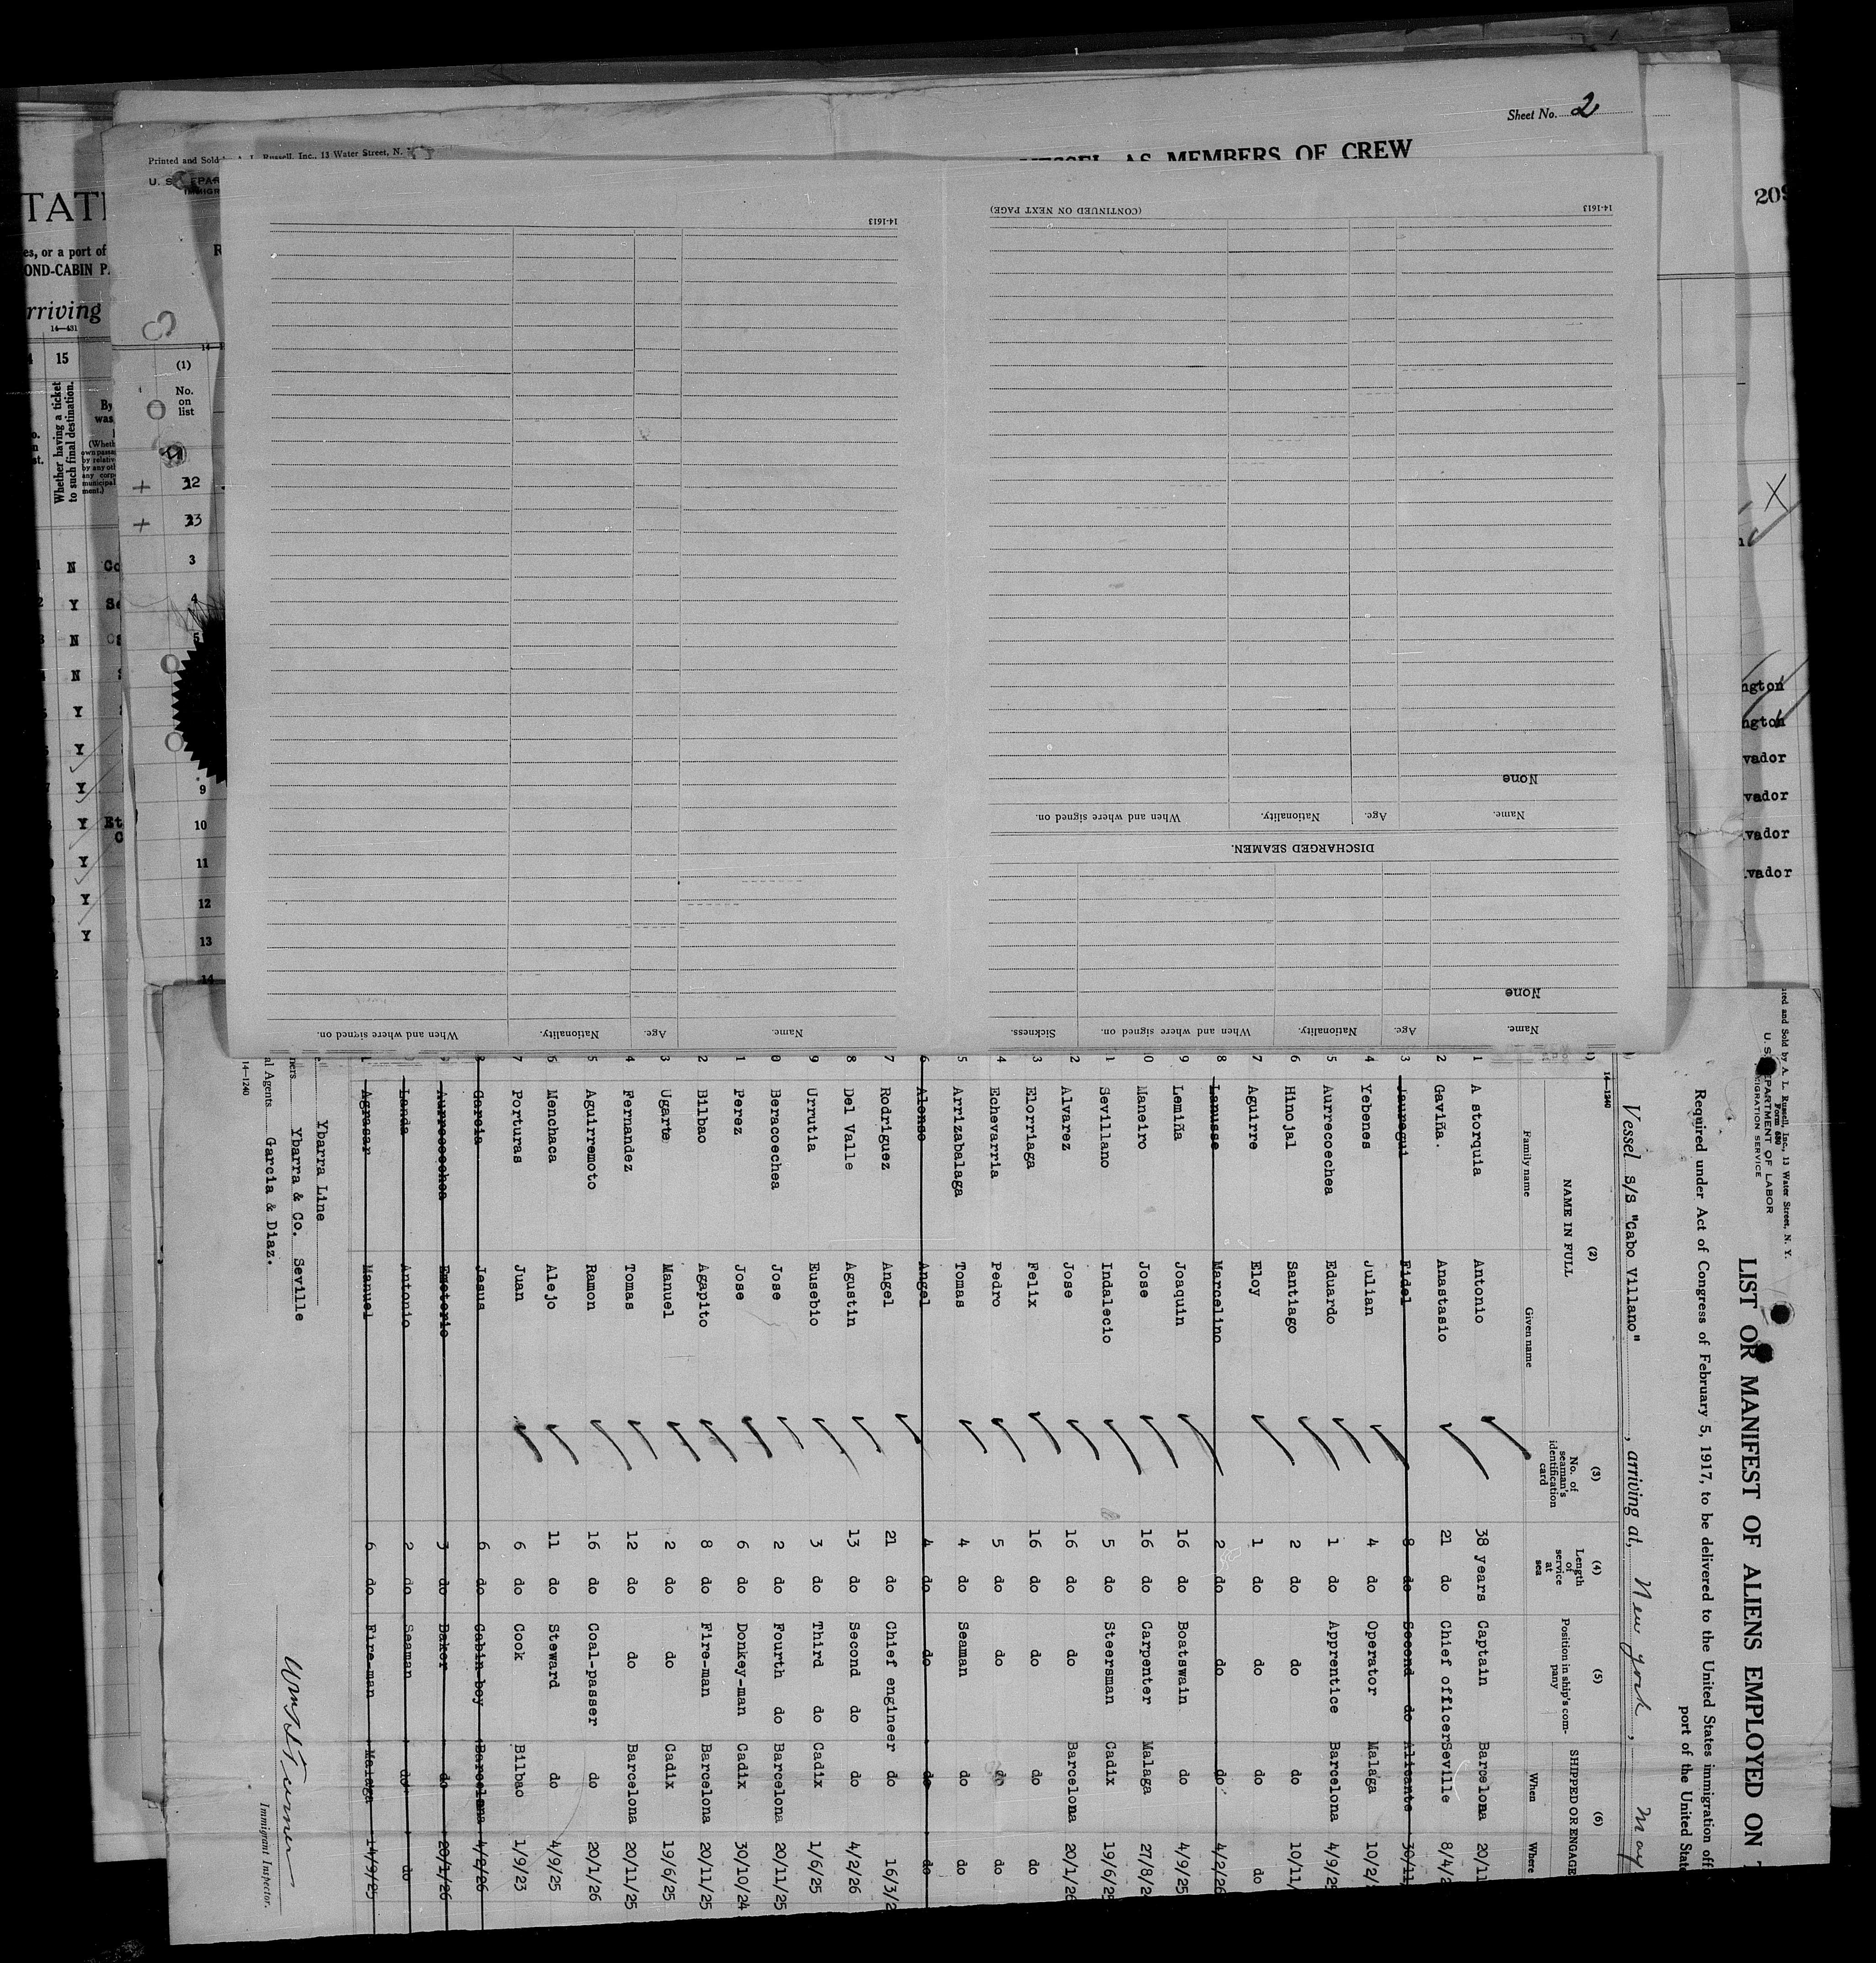 Sheet No. 2
VESSEL AS MEMBERS OF CREW
Printed and Sold
Russell, Inc., 13 Water Street, N.
U. S.
209
TATE
es, or a port of
OND-CABIN P
rriving
14—431
15
Whether having a ticket
to such final destination.
By
was
(1)
No.
on
list
32
33
3
4
5
9
10
11
12
13
14
N
Y
N
N
Y
Y
Y
Y
Y
Y
Y
ngton
ngton
vador
vador
vador
vador
14-1613
(CONTINUED ON NEXT PAGE)
14-1613
None
Name.
Age.
Nationality.
When and where signed on.
DISCHARGED SEAMEN.
None
Name.
Age.
Nationality.
When and where signed on.
Sickness.
Name.
Age.
Nationality.
When and where signed on.
ted and Sold by A. L. Russell, Inc., 13 Water Street, N. Y.
Form 680
U. S. DEPARTMENT OF LABOR
IMMIGRATION SERVICE
LIST OR MANIFEST OF ALIENS EMPLOYED ON T
Required under Act of Congress of February 5, 1917, to be delivered to the United States immigration off
port of the United State
Vessel S/S "Cabo Villano", arriving at, New York, May
14—1240
(2)
NAME IN FULL
Family name Given name
(3)
No. of
seaman's
identification
card
(4)
Length
of
service
at
sea
(5)
Position in ship's com-
pany
(6)
SHIPPED OR ENGAGE
When Where
1 A storquia Antonio 38 years Captain Barcelona 20/11
2 Gaviña. Anastasio 21 do Chief officer Seville 8/4/2
3 Jauregui Fidel 8 do Second do Alicante 30/11
4 Yebenes Julian 4 do Operator Malaga 10/2/
5 Aurrecoechea Eduardo 1 do Apprentice Barcelona 4/9/2
6 Hinojal Santiago 2 do do do 10/11/
7 Aguirre Eloy 1 do do do do
8 Lanusse Marcelino 2 do do do 4/2/26
9 Lemiña Joaquin 16 do Boatswain do 4/9/25
0 Maneiro Jose 16 do Carpenter Malaga 27/8/2
1 Sevillano Indalecio 5 do Steersman Cadix 19/6/25
2 Alvarez Jose 16 do do Barcelona 20/1/26
3 Elorriaga Felix 16 do do do do
4 Echevarria Pedro 5 do do do do
5 Arrizabalaga Tomas 4 do Seaman do do
6 Alonso Angel 4 do do do do
7 Rodriguez Angel 21 do Chief engineer do 16/3/2
8 Del Valle Agustin 13 do Second do do 4/2/26
9 Urrutia Eusebio 3 do Third do Cadix 1/6/25
0 Beracoechea Jose 2 do Fourth do Barcelona 20/11/25
1 Perez Jose 6 do Donkey-man Cadix 30/10/24
2 Bilbao Agapito 8 do Fire-man Barcelona 20/11/25
3 Ugarte Manuel 2 do do Cadix 19/6/25
4 Fernandez Tomas 12 do do Barcelona 20/11/25
5 Aguirremoto Ramon 16 do Coal-passer do 20/1/26
6 Menchaca Alejo 11 do Steward do 4/9/25
7 Porturas Juan 6 do Cook Bilbao 1/9/23
8 Garcia Jesus 6 do Cabin-boy Barcelona 4/2/26
9 Aurrecoechea Emeterio 3 do Baker do 20/1/26
Landa Antonio 2 do Seaman do do
Agrasar Manuel 6 do Fire-man Malaga 14/9/25
Ybarra Line
ners Ybarra & Co. Seville
al Agents Garcia & Diaz.
14—1240
Immigrant Inspector.